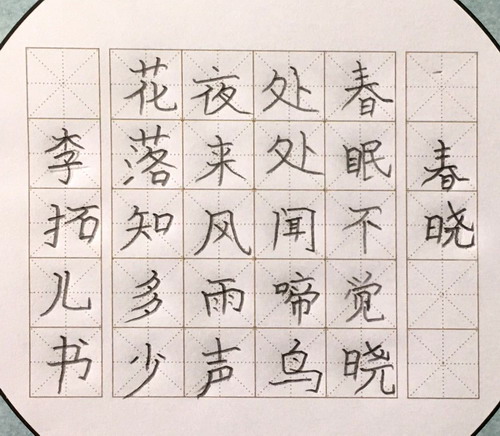 春晓
春眠不觉晓
处处闻啼鸟
夜来风雨声
花落知多少
李拓儿书